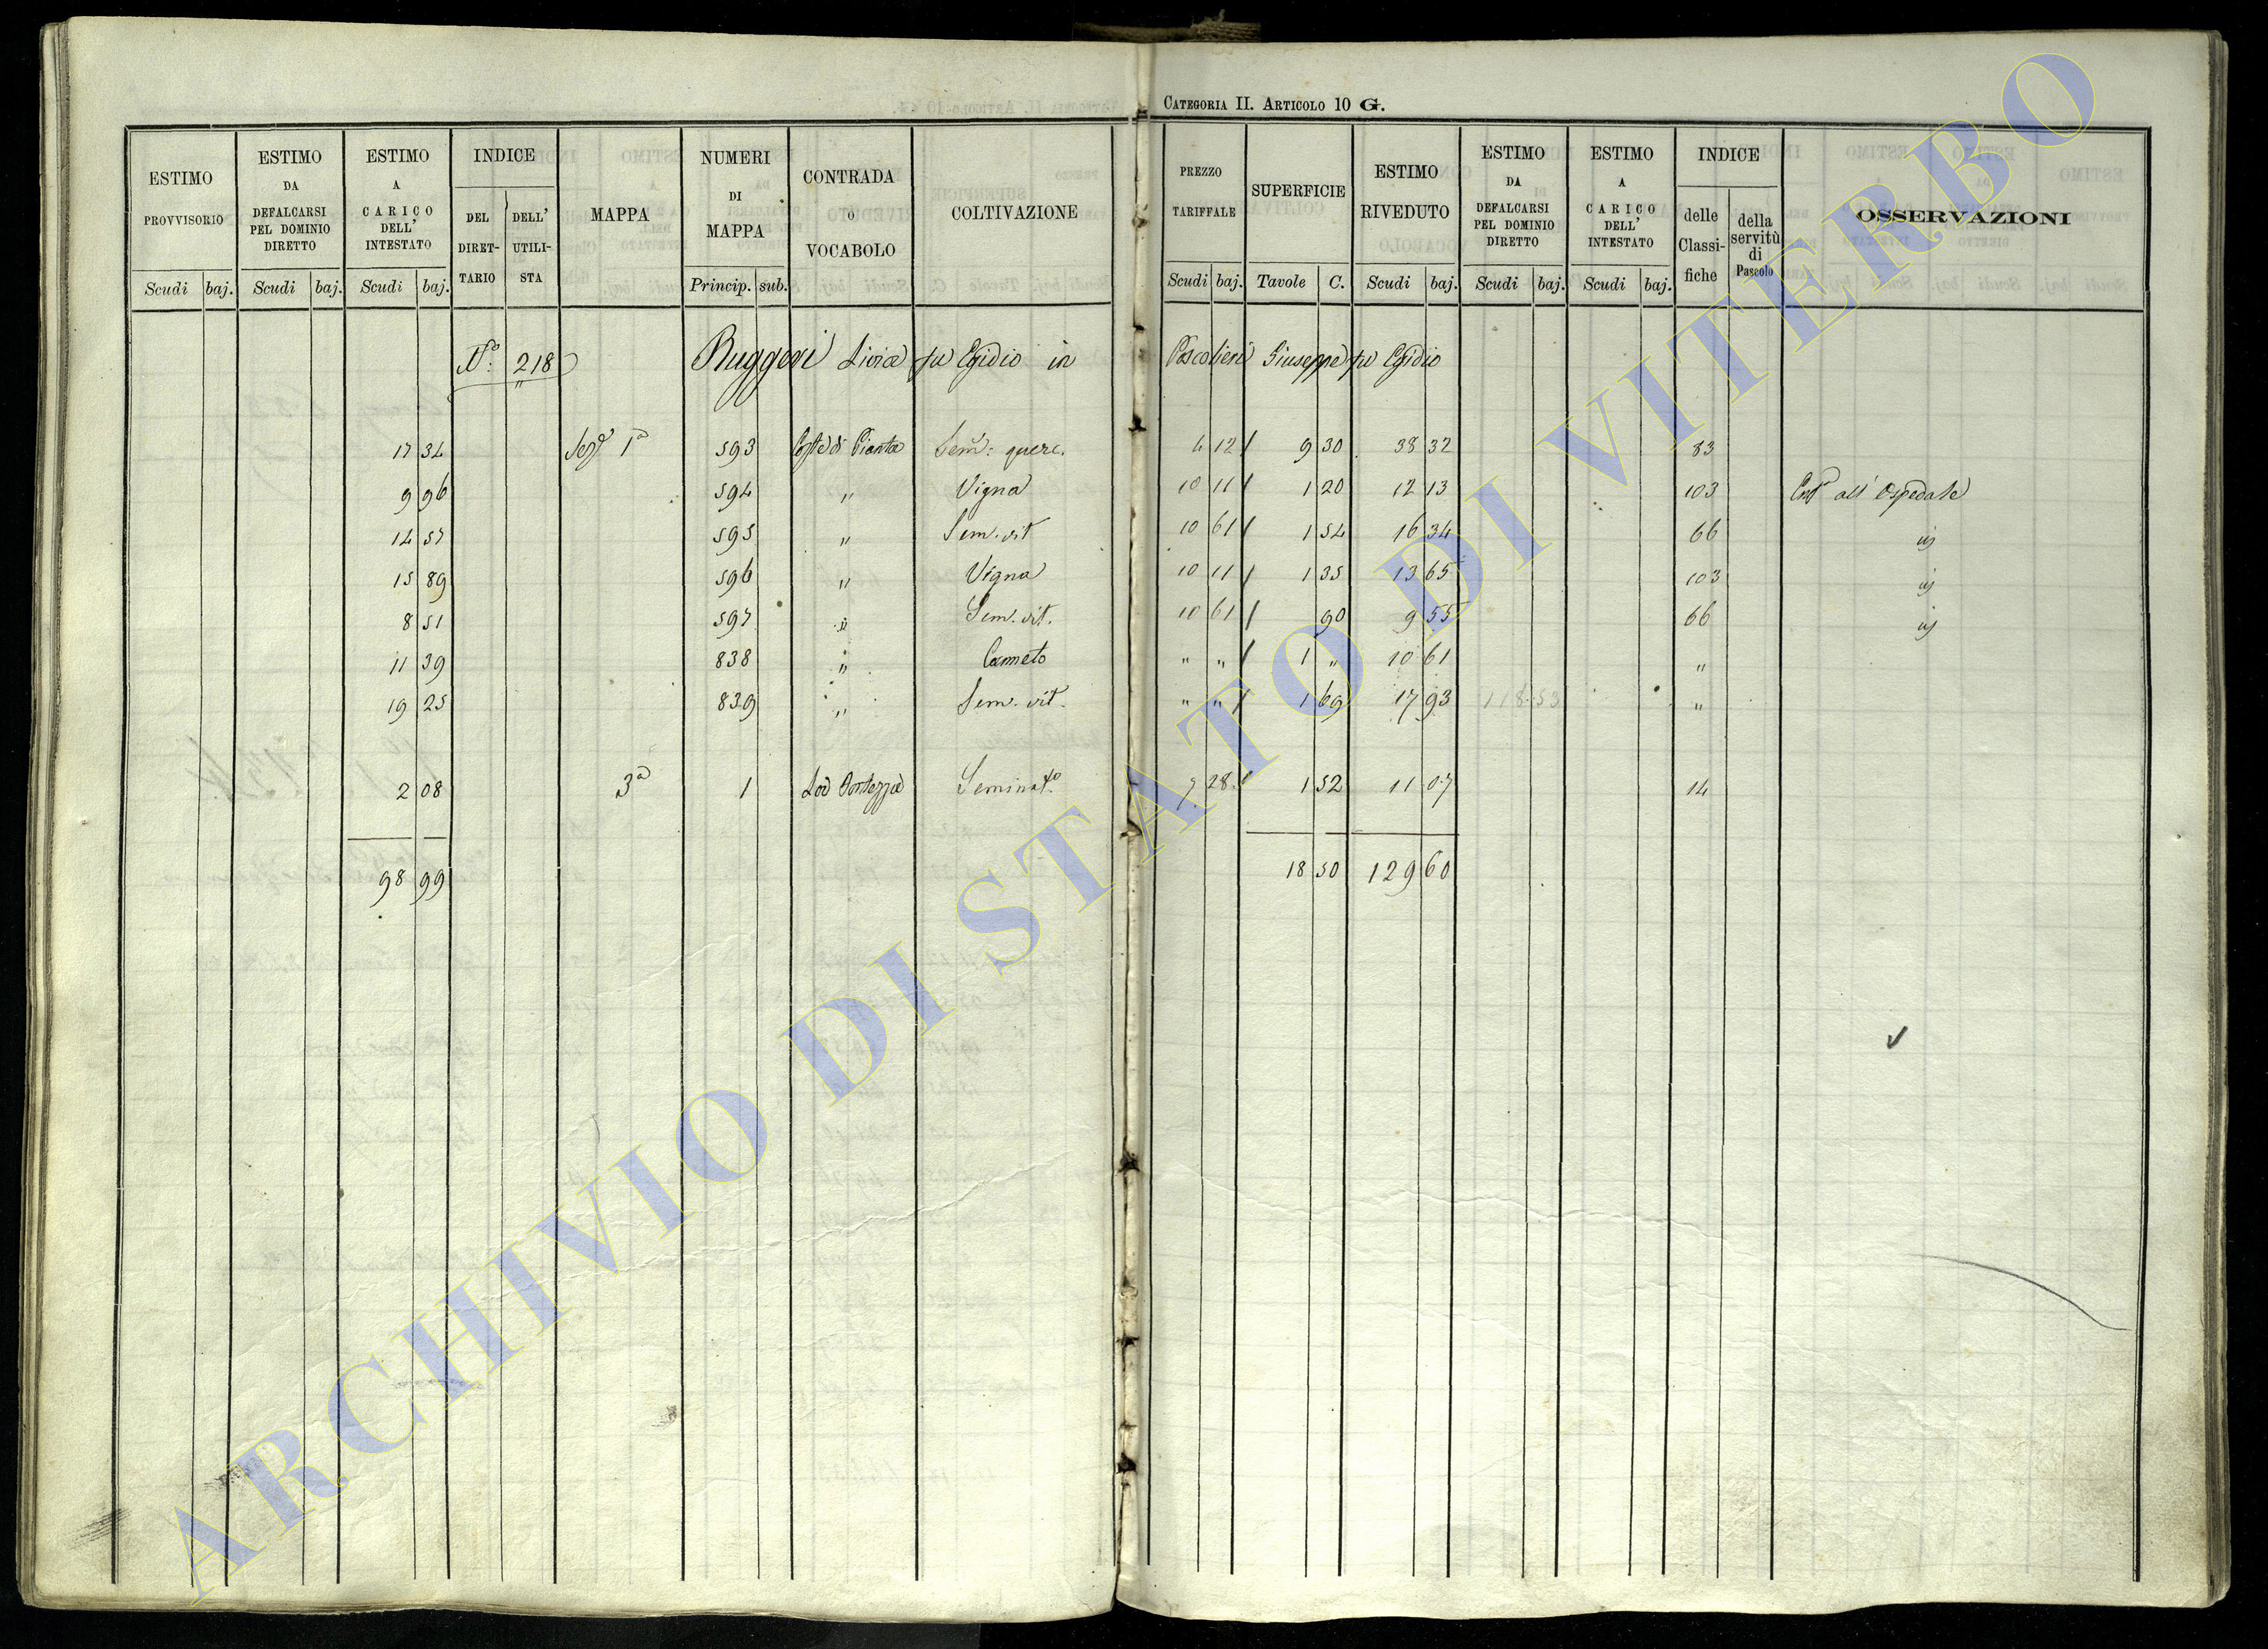 CATEGORIA II. ARTICOLO 10 G.
ESTIMO PROVVISORIO Scudi baj.
ESTIMO DA DEFALCARSI PEL DOMINIO DIRETTO Scudi baj.
ESTIMO A CARICO DELL' INTESTATO Scudi baj.
INDICE DEL DIRETTARIO DELL' UTILISTA
MAPPA
NUMERI DI MAPPA Princip. sub.
CONTRADA O VOCABOLO
COLTIVAZIONE
PREZZO TARIFFALE Scudi baj.
SUPERFICIE Tavole C.
ESTIMO RIVEDUTO Scudi baj.
ESTIMO DA DEFALCARSI PEL DOMINIO DIRETTO Scudi baj.
ESTIMO A CARICO DELL' INTESTATO Scudi baj.
INDICE delle Classifiche della servitù di Pascolo
OSSERVAZIONI
N.° 218 Ruggeri Livia fu Egidio in Pascolieri Giuseppe fu Egidio
17 34 1ª 593 Coste di Pianta Sem: querc. 4 12 9 30 38 32 83
9 96 594 " Vigna 10 11 1 20 12 13 103 all' Ospedale
14 57 595 " Sem. vit 10 61 1 54 16 34 66
15 89 596 " Vigna 10 11 1 35 13 65 103
8 51 597 " Sem. vit. 10 61 90 9 55 66
11 39 838 " Canneto " " 1 " 10 61 "
19 25 839 " Sem. vit. " " 1 69 17 93 118.53 "
2 08 3ª 1 La Seminat.º 7 28 1 52 11 07 14
98 99 18 50 129 60
ARCHIVIO DI STATO DI VITERBO